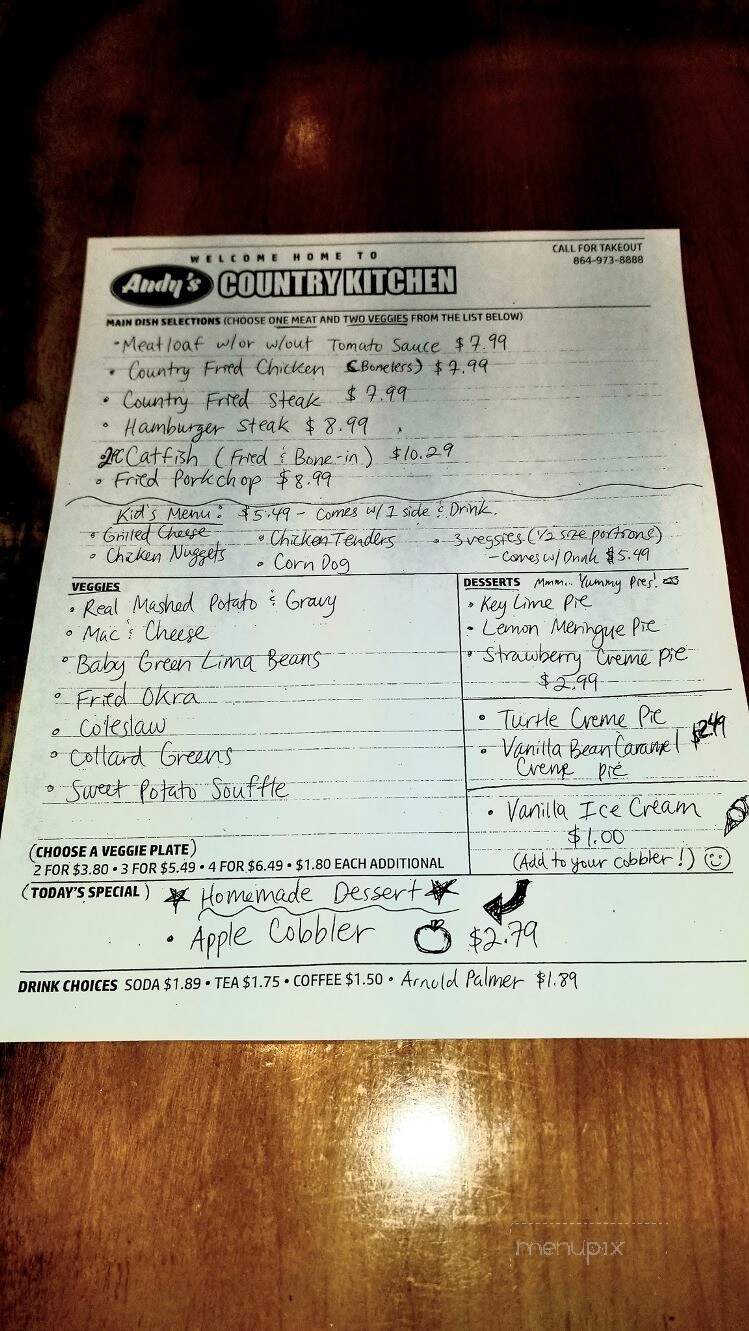 WELCOME HOME TO
Andy's COUNTRY KITCHEN
CALL FOR TAKEOUT
864-973-8888
MAIN DISH SELECTIONS (CHOOSE ONE MEAT AND TWO VEGGIES FROM THE LIST BELOW)
• Meatloaf w/or w/out Tomato Sauce $7.99
• Country Fried Chicken (Boneless) $7.99
• Country Fried Steak $7.99
• Hamburger Steak $8.99
Catfish (Fried & Bone-in) $10.29
• Fried Porkchop $8.99
Kid's Menu: $5.49 - Comes w/ 1 side & Drink.
• Grilled Cheese • Chicken Tenders • 3 veggies (1/2 size portions)
• Chicken Nuggets • Corn Dog - comes w/ Drink $5.49
VEGGIES
• Real Mashed Potato & Gravy
• Mac & Cheese
• Baby Green Lima Beans
• Fried Okra
• Coleslaw
• Collard Greens
• Sweet Potato Souffle
(CHOOSE A VEGGIE PLATE)
2 FOR $3.80 • 3 FOR $5.49 • 4 FOR $6.49 • $1.80 EACH ADDITIONAL
DESSERTS Mmm.. Yummy Pies!
• Key Lime Pie
• Lemon Meringue Pie
• Strawberry Creme Pie
$2.99
• Turtle Creme Pie
• Vanilla Bean Caramel $2.49
Creme pie
• Vanilla Ice Cream
$1.00
(Add to your cobbler!)
(TODAY'S SPECIAL) Homemade Dessert
• Apple Cobbler $2.79
DRINK CHOICES SODA $1.89 • TEA $1.75 • COFFEE $1.50 • Arnold Palmer $1.89
menupix